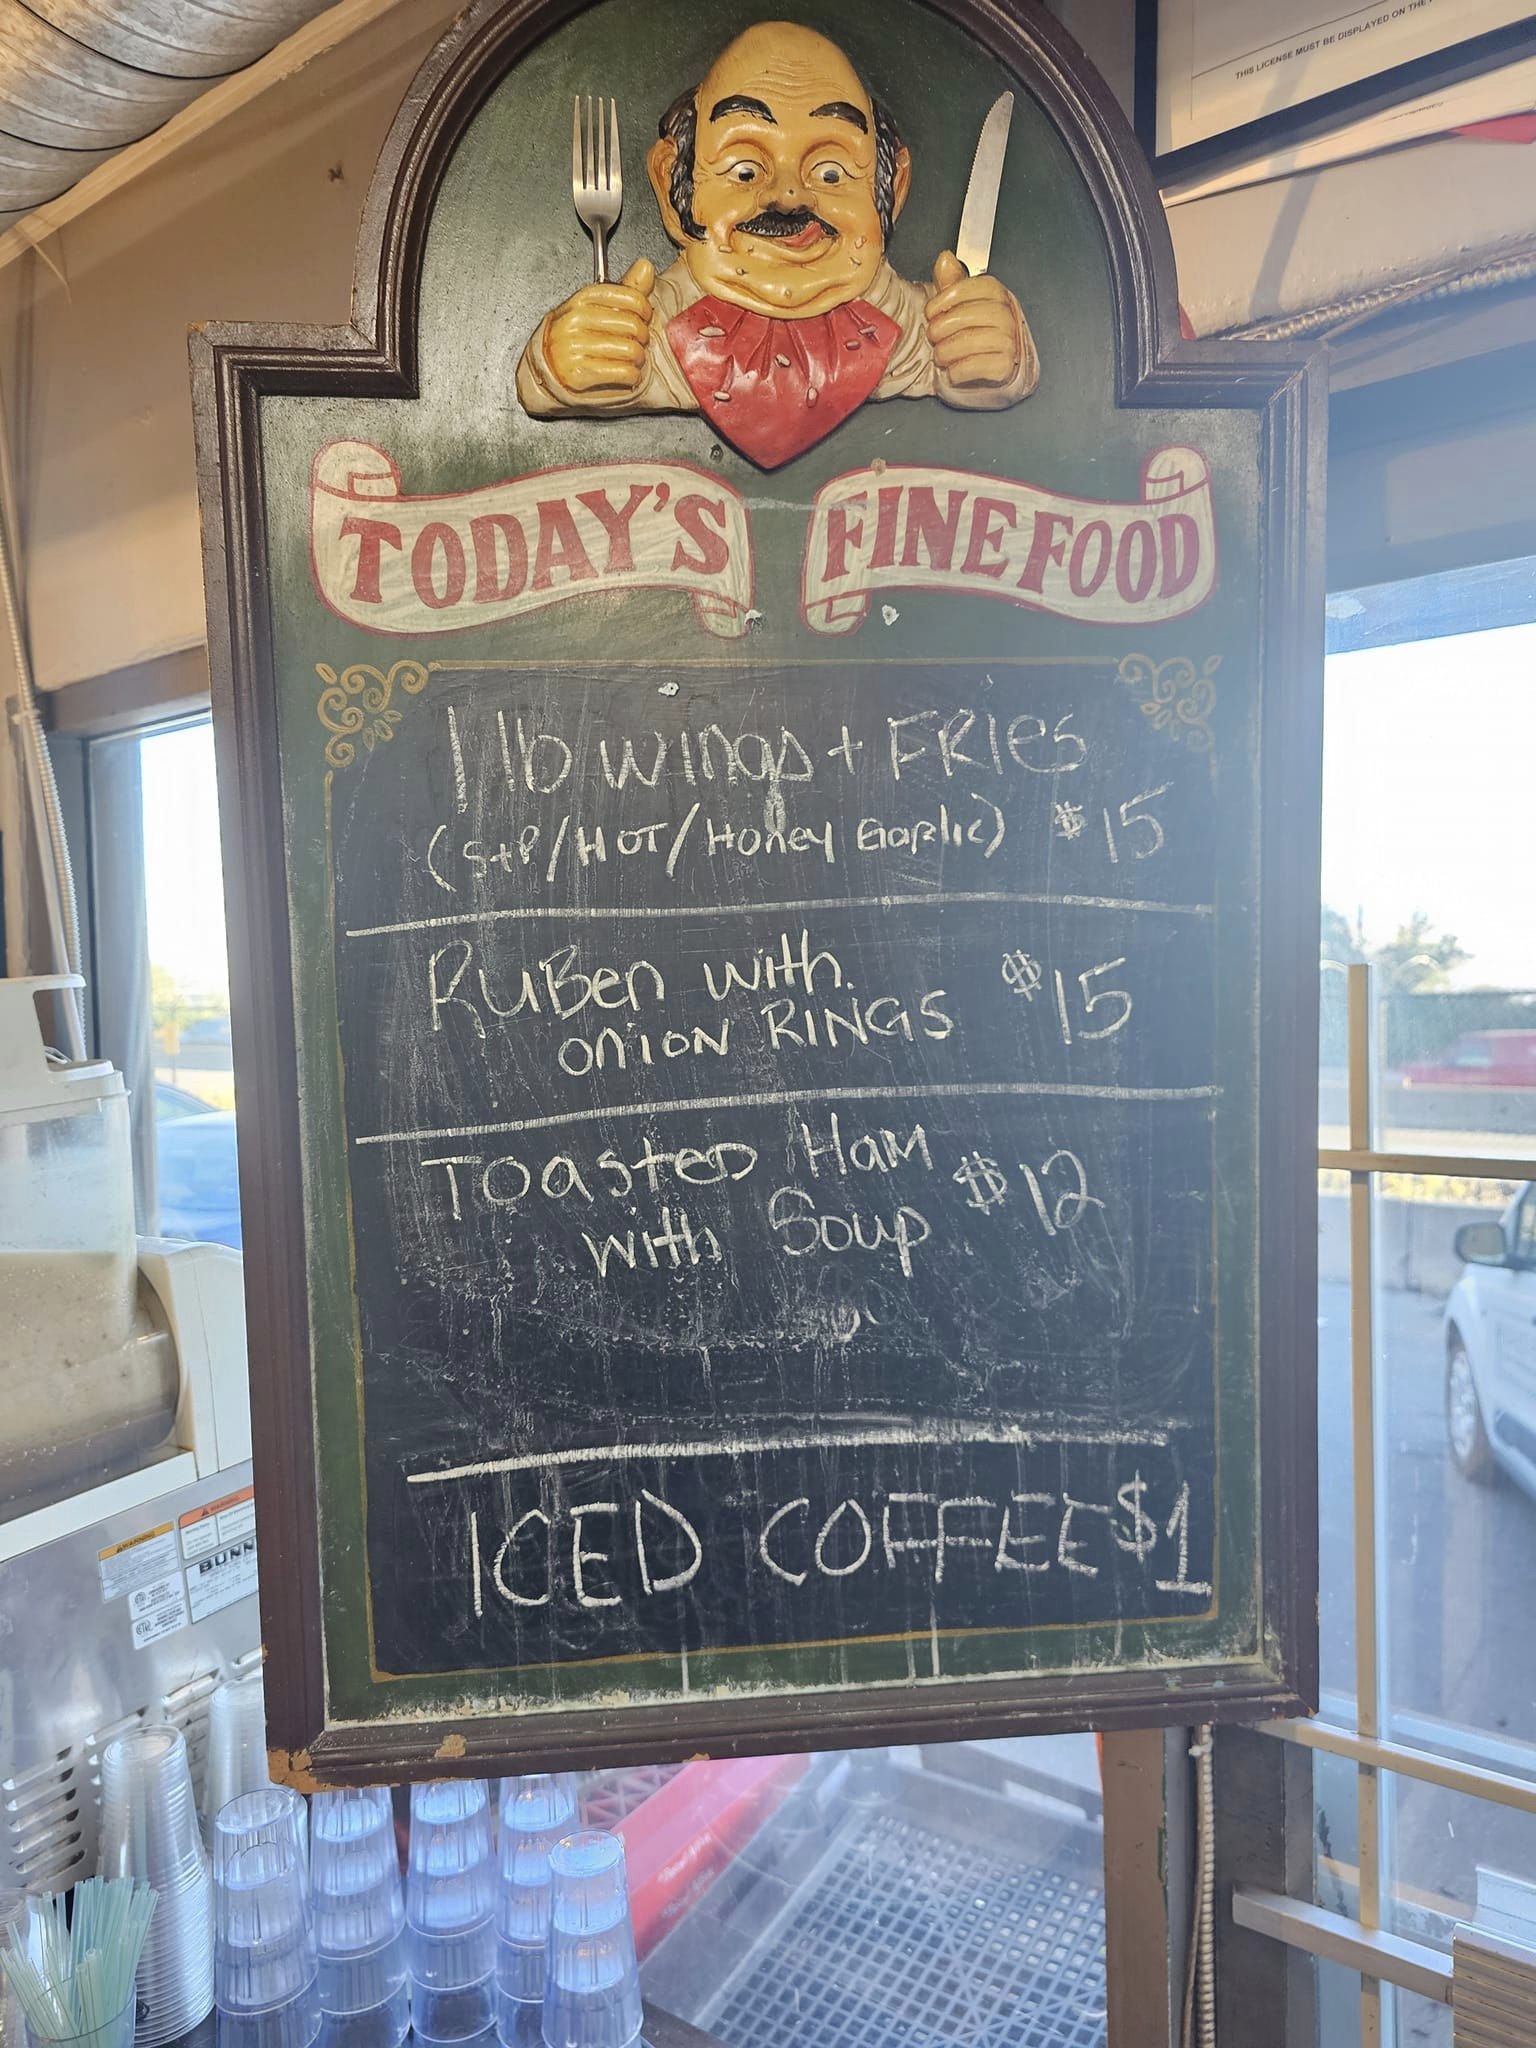 THIS LICENSE MUST BE DISPLAYED ON THE
TODAY'S FINE FOOD
1 lb wings + FRIes
(S+P/HOT/Honey Garlic) $15
RuBen with
onion RINGS $15
Toasted Ham
with Soup $12
ICED COFFEE $1
WARNING
WARNING
BUNN